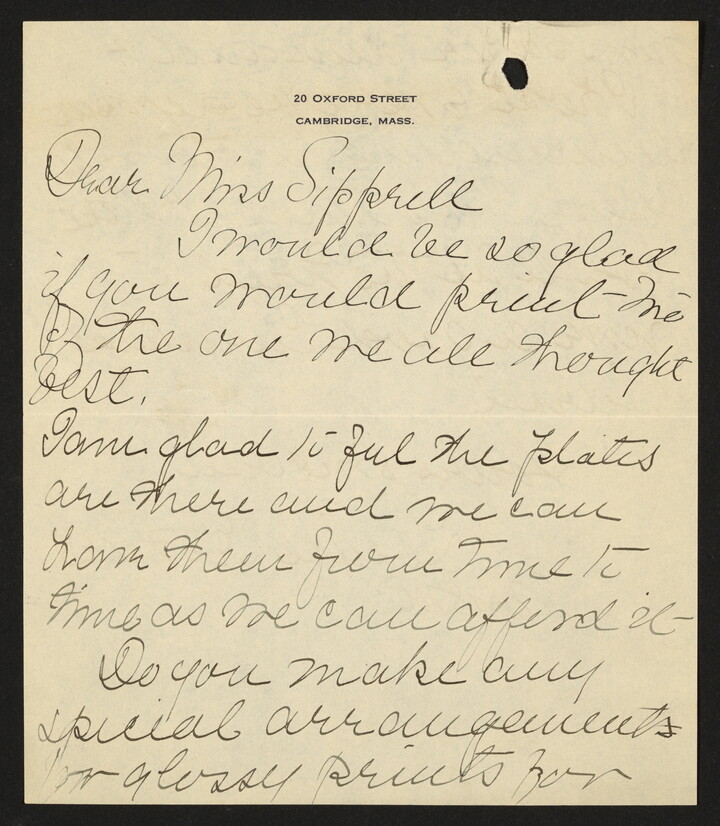 20 OXFORD STREET
CAMBRIDGE, MASS.
Dear Miss Sipprell
I would be so glad
if you would print me
of the one we all thought
best.
I am glad to feel the plates
are there and we can
have them from time to
time as we can afford it
Do you make any
special arrangements
for glossy prints for